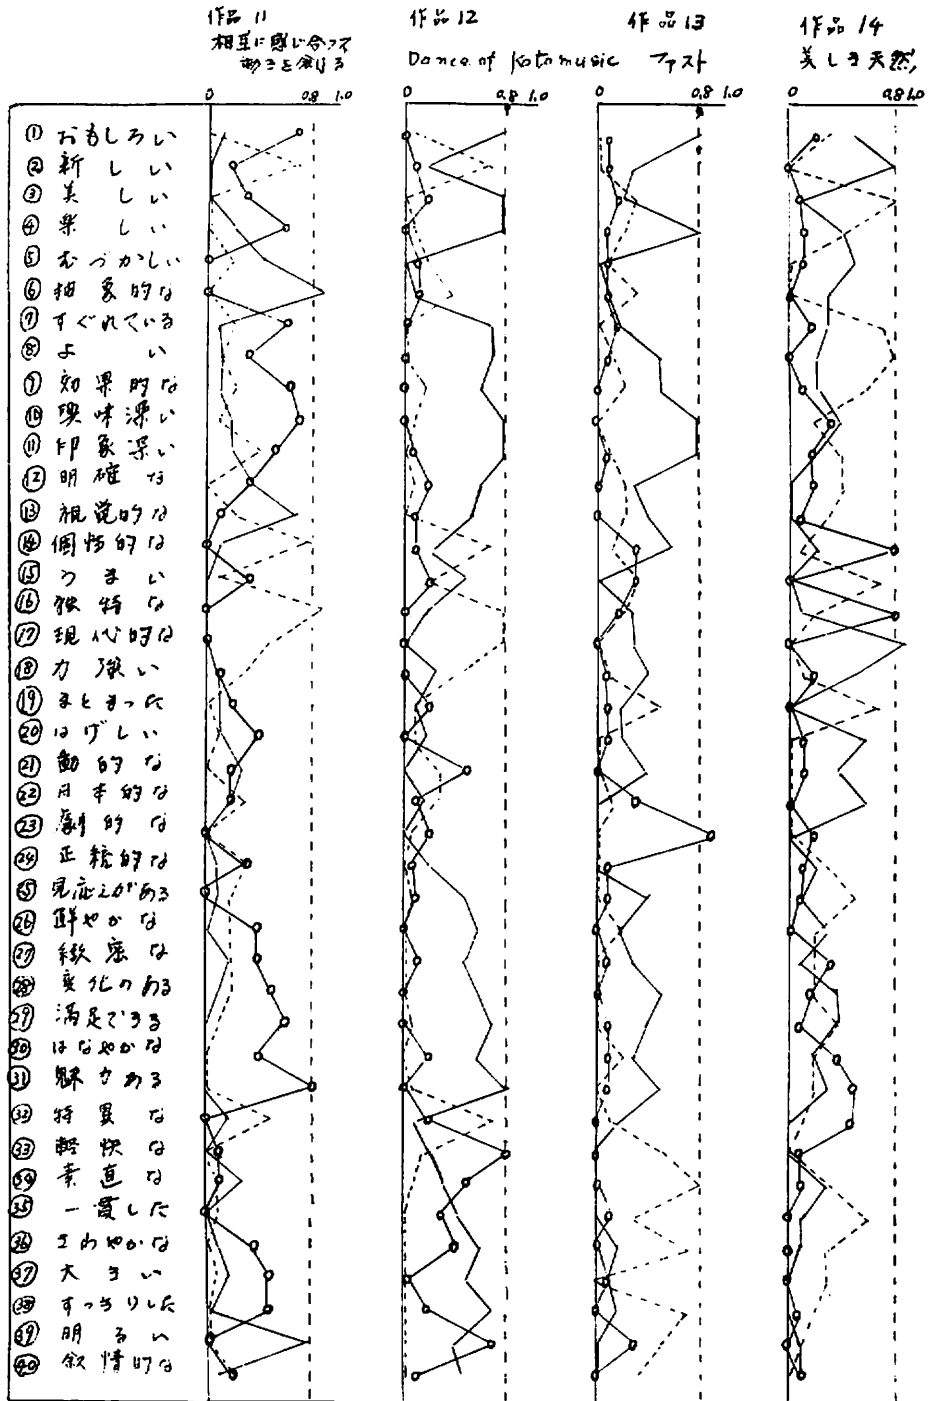 作品 11
相互に感じ合って
動きを創る
作品12
Dance of Koto music
作品13
ファスト
作品14
美しき天然
0 0.8 1.0
0 0.8 1.0
0 0.8 1.0
0 0.8 1.0
① おもしろい
② 新しい
③ 美しい
④ 楽しい
⑤ むづかしい
⑥ 抽象的な
⑦ すぐれている
⑧ よい
⑨ 効果的な
⑩ 興味深い
⑪ 印象深い
⑫ 明確な
⑬ 視覚的な
⑭ 個性的な
⑮ うまい
⑯ 独特な
⑰ 現代的な
⑱ 力強い
⑲ まとまった
⑳ はげしい
㉑ 動的な
㉒ 日本的な
㉓ 劇的な
㉔ 正統的な
㉕ 見応えがある
㉖ 鮮やかな
㉗ 緻密な
㉘ 変化のある
㉙ 満足できる
㉚ はなやかな
㉛ 魅力ある
㉜ 特異な
㉝ 軽快な
㉞ 素直な
㉟ 一貫した
㊱ さわやかな
㊲ 大きい
㊳ すっきりした
㊴ 明るい
㊵ 叙情的な